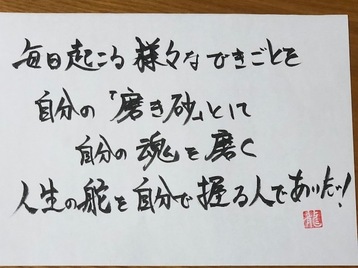 毎日起こる様々なできごとを
自分の「磨き砂」として
自分の魂を磨く
人生の舵を自分で握る人でありたい!
龍